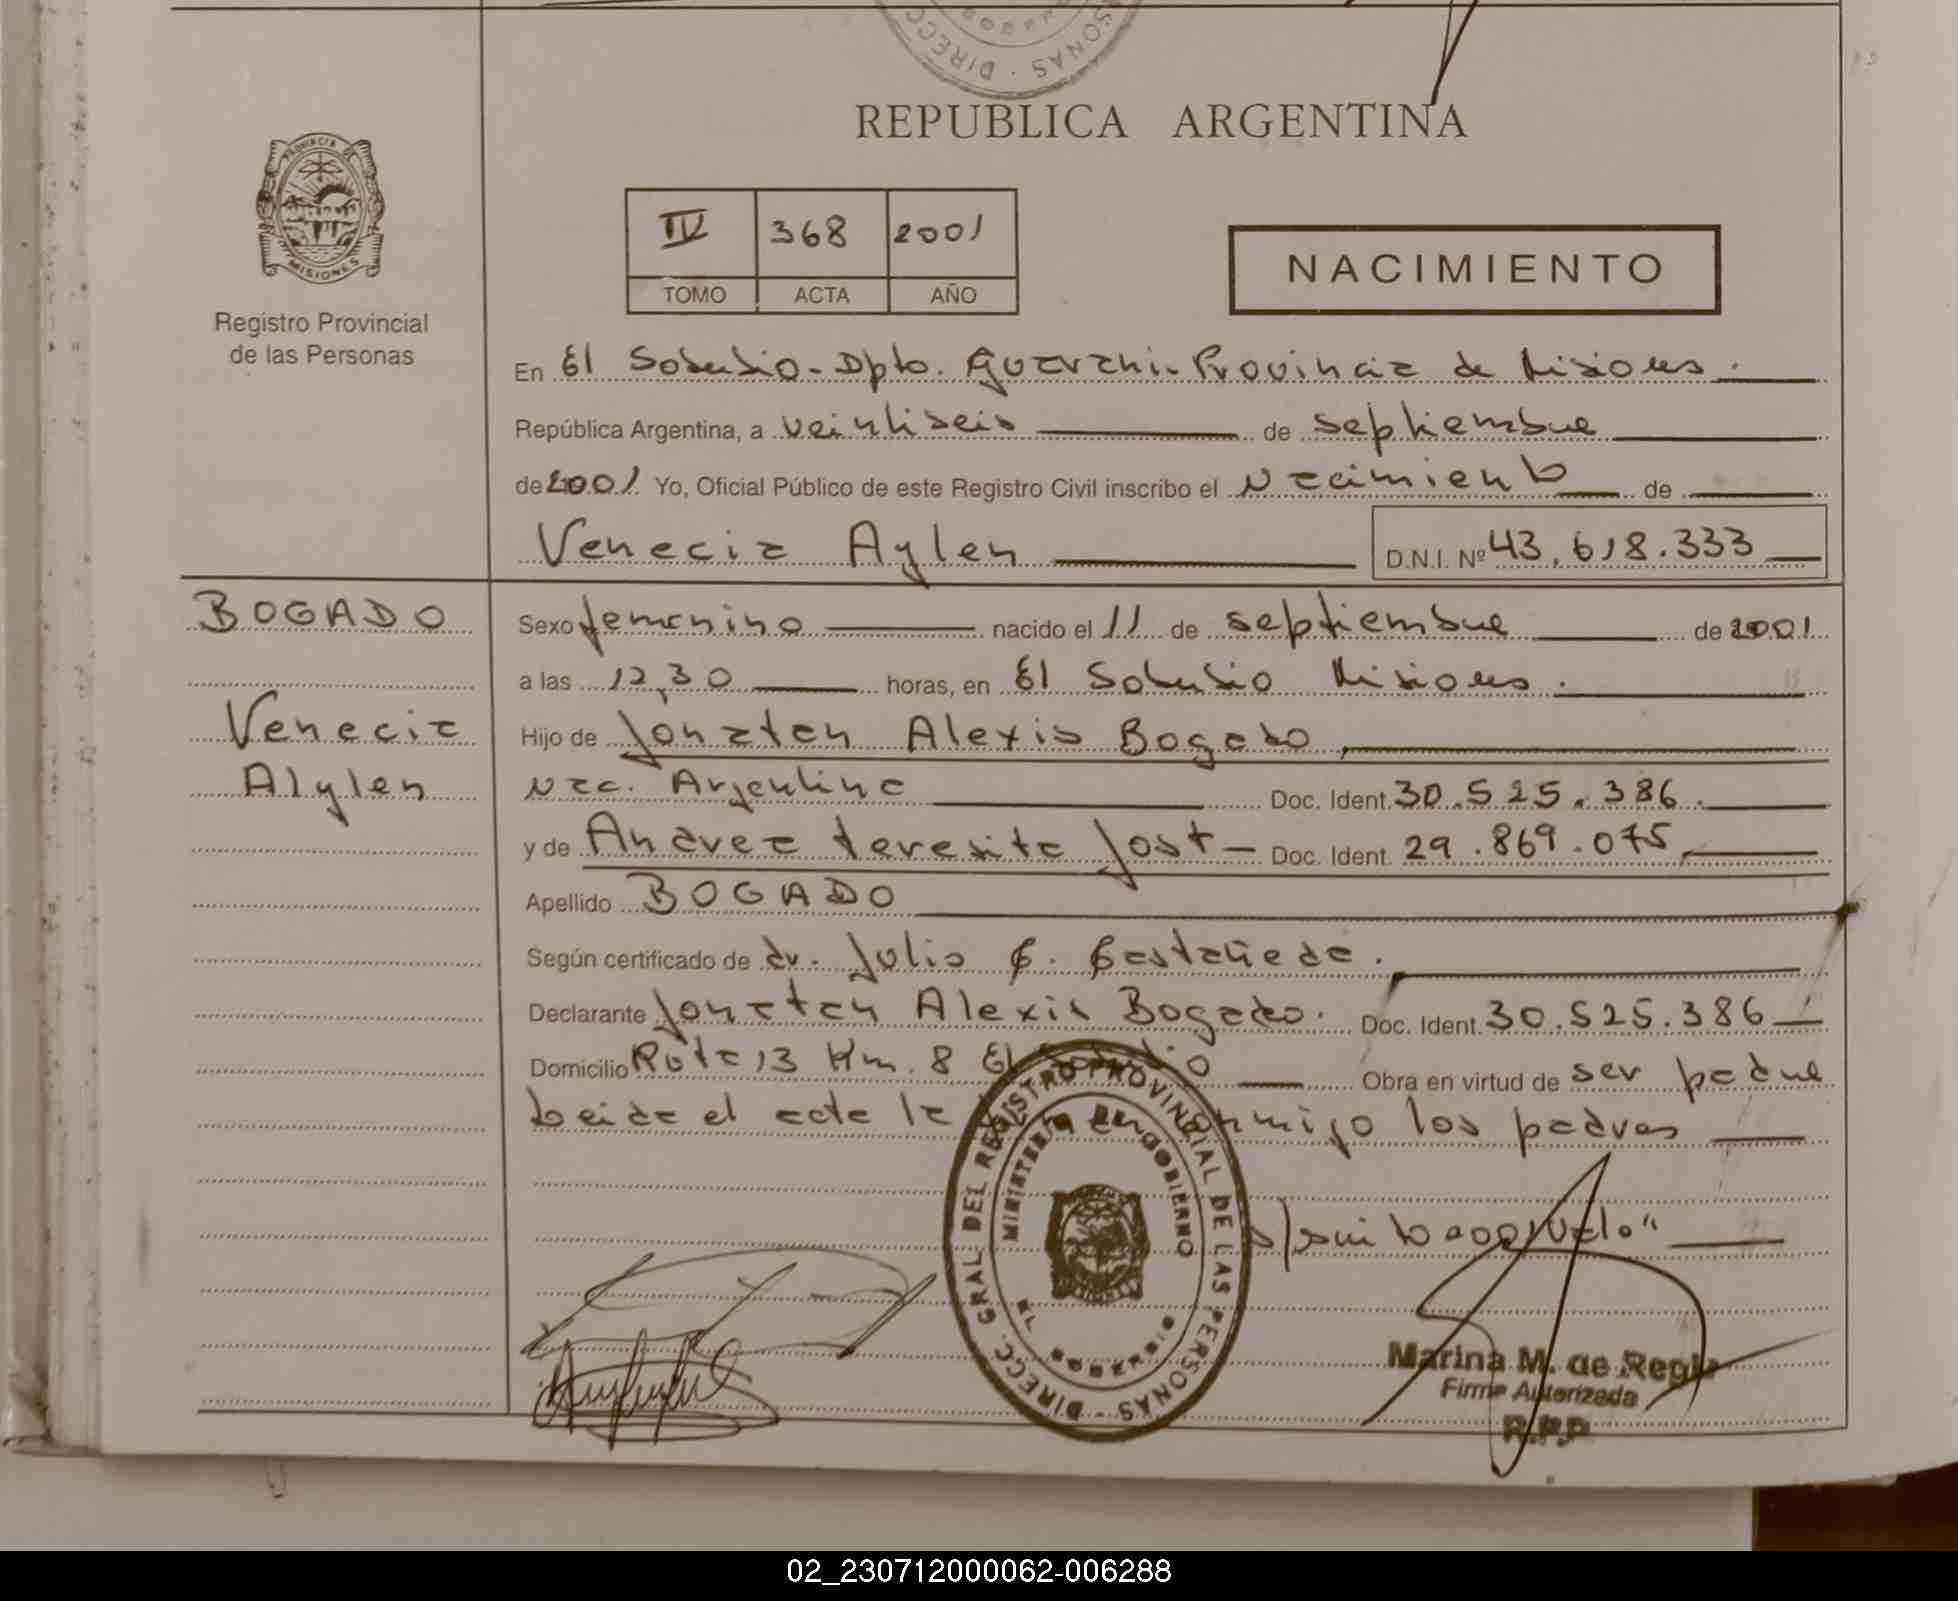 REPUBLICA ARGENTINA
PROVINCIA DE
MISIONES
Registro Provincial
de las Personas
IV 368 2001
TOMO ACTA AÑO
NACIMIENTO
En El Soberbio - Dpto. Guarani - Provincia de Misiones.
República Argentina, a veintiseis de septiembre
de 2001 Yo, Oficial Público de este Registro Civil inscribo el nacimiento de
Venecia Aylen D.N.I. Nº 43.618.333
BOGADO
Venecia
Alylen
Sexo femenino nacido el 11 de septiembre de 2001
a las 12,30 horas, en El Soberbio Misiones.
Hijo de Jonatan Alexis Bogado,
nac. Argentina Doc. Ident. 30.525.386.
y de Andrea teresita Jost - Doc. Ident. 29.869.075
Apellido BOGADO
Según certificado de dr. Julio C. Castañeda.
Declarante Jonatan Alexis Bogado. Doc. Ident. 30.525.386
Domicilio Ruta 13 Km. 8 El Obra en virtud de ser padre
Leida el acta la conmigo los padres
DIRECC. GRAL DEL REGISTRO PROVINCIAL DE LAS PERSONAS
MINISTERIO DE GOBIERNO
EL SOBERBIO
Marina M. de Regis
Firma Autorizada
R.P.P
02_230712000062-006288